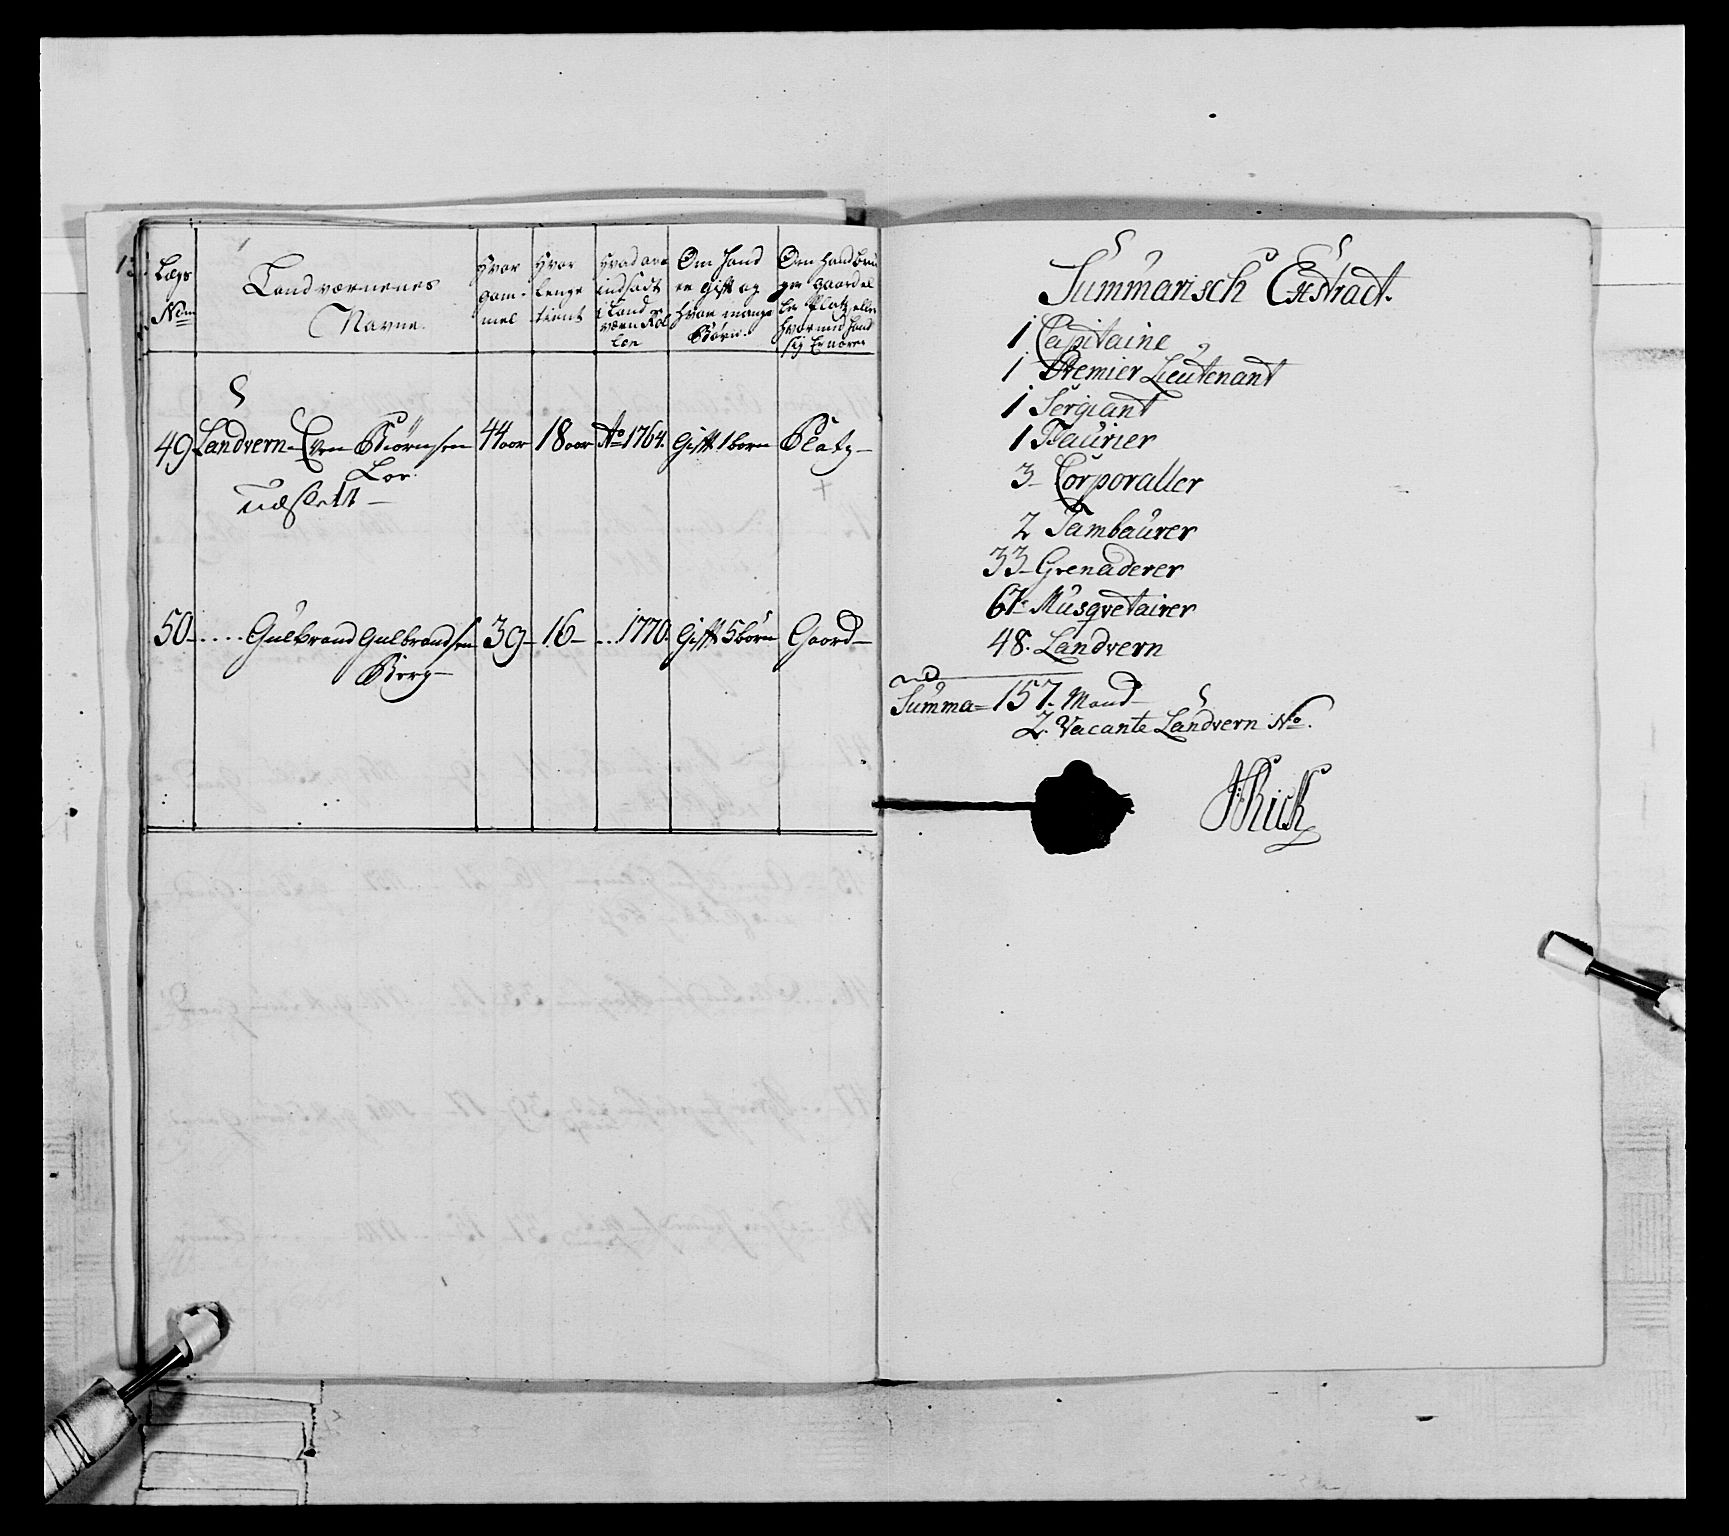 Lægs
No
Landværnenes
Navne.
Hvor
gam-
mel
Hvor
lenge
tient
Hvad aar
indsadt
i Land
værn Rol
len
Om hand
er gift og
hvor mange
Børn.
Om hand bru
ger Gaard el
ler Platz eller
hvormed hand
sig Ernærer
49 Landvern Even Biörnsen 44 aar 18 aar Ao 1764. Gift 1 barn Platz
Loe
50 Gulbrand Gulbrandsen 39 16 1770. Gift 5 börn Gaard
Berg
Summarisch Extract.
1 Capitaine
1 Premier Lieutenant
1 Sergiant
1 Faurier
3 Corporaller
2 Tambaurer
33 Grenaderer
67 Musqvetairer
48. Landvern
Summa = 157. Mand
2. Vacante Landvern No.